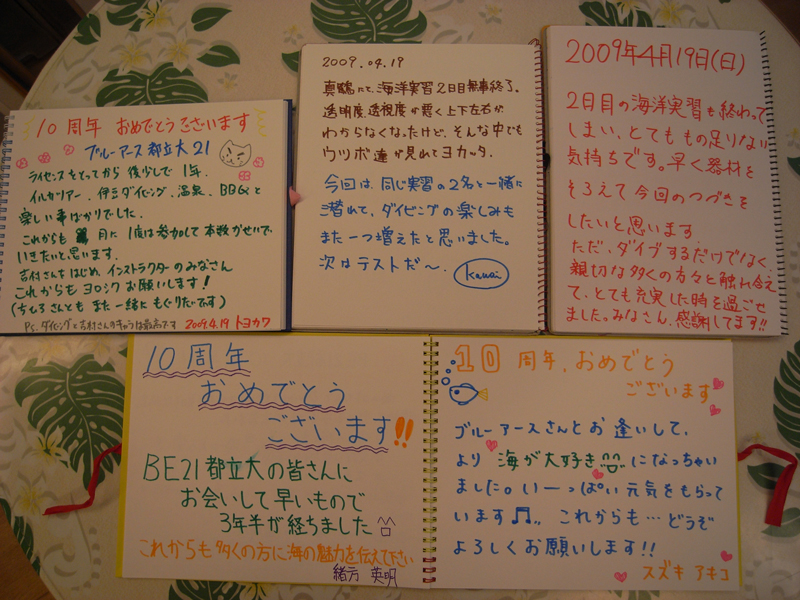 10周年 おめでとうございます
ブルーアース都立大21
ライセンスをとってから 後少しで 1年.
イルカツアー、伊豆ダイビング、温泉、BBQと
楽しい事ばかりでした.
これからも 月に 1度は参加して本数かせいで
いきたいと思います.
吉村さんをはじめ、インストラクターのみなさん
これからも ヨロシク お願いします!
(ちひろさんとも また一緒に もぐりたいです)
Ps. ダイビングと吉村さんのキャラは最高です 2009.4.19 トヨカワ
2009.04.19
真鶴にて、海洋実習2日目無事終了。
透明度、透視度が悪く上下左右が
わからなくなったけど、そんな中でも
ウツボ達が見れてヨカッタ。
今回は、同じ実習の2名と一緒に
潜れて、ダイビングの楽しみも
また一つ増えたと思いました。
次はテストだ〜。 Kawai
2009年4月19日(日)
2日目の海洋実習も終わって
しまい、とても もの足りない
気持ちです。早く器材を
そろえて 今回のつづきを
したいと思います
ただ、ダイブするだけでなく、
親切な多くの方々と触れ合え
て、とても充実した時を過ごせ
ました。みなさん、感謝してます!!
10周年
おめでとう
ございます!!
BE21都立大の皆さんに
お会いして早いもので
3年半が経ちました
これからも多くの方に海の魅力を伝えて下さい
緒方 英明
10周年、おめでとう
ございます
ブルーアースさんとお逢いして、
より 海が大好き になっちゃい
ました。いーっぱい元気をもらって
います♫.. これからも…どうぞ
よろしくお願いします!!
スズキ アキコ